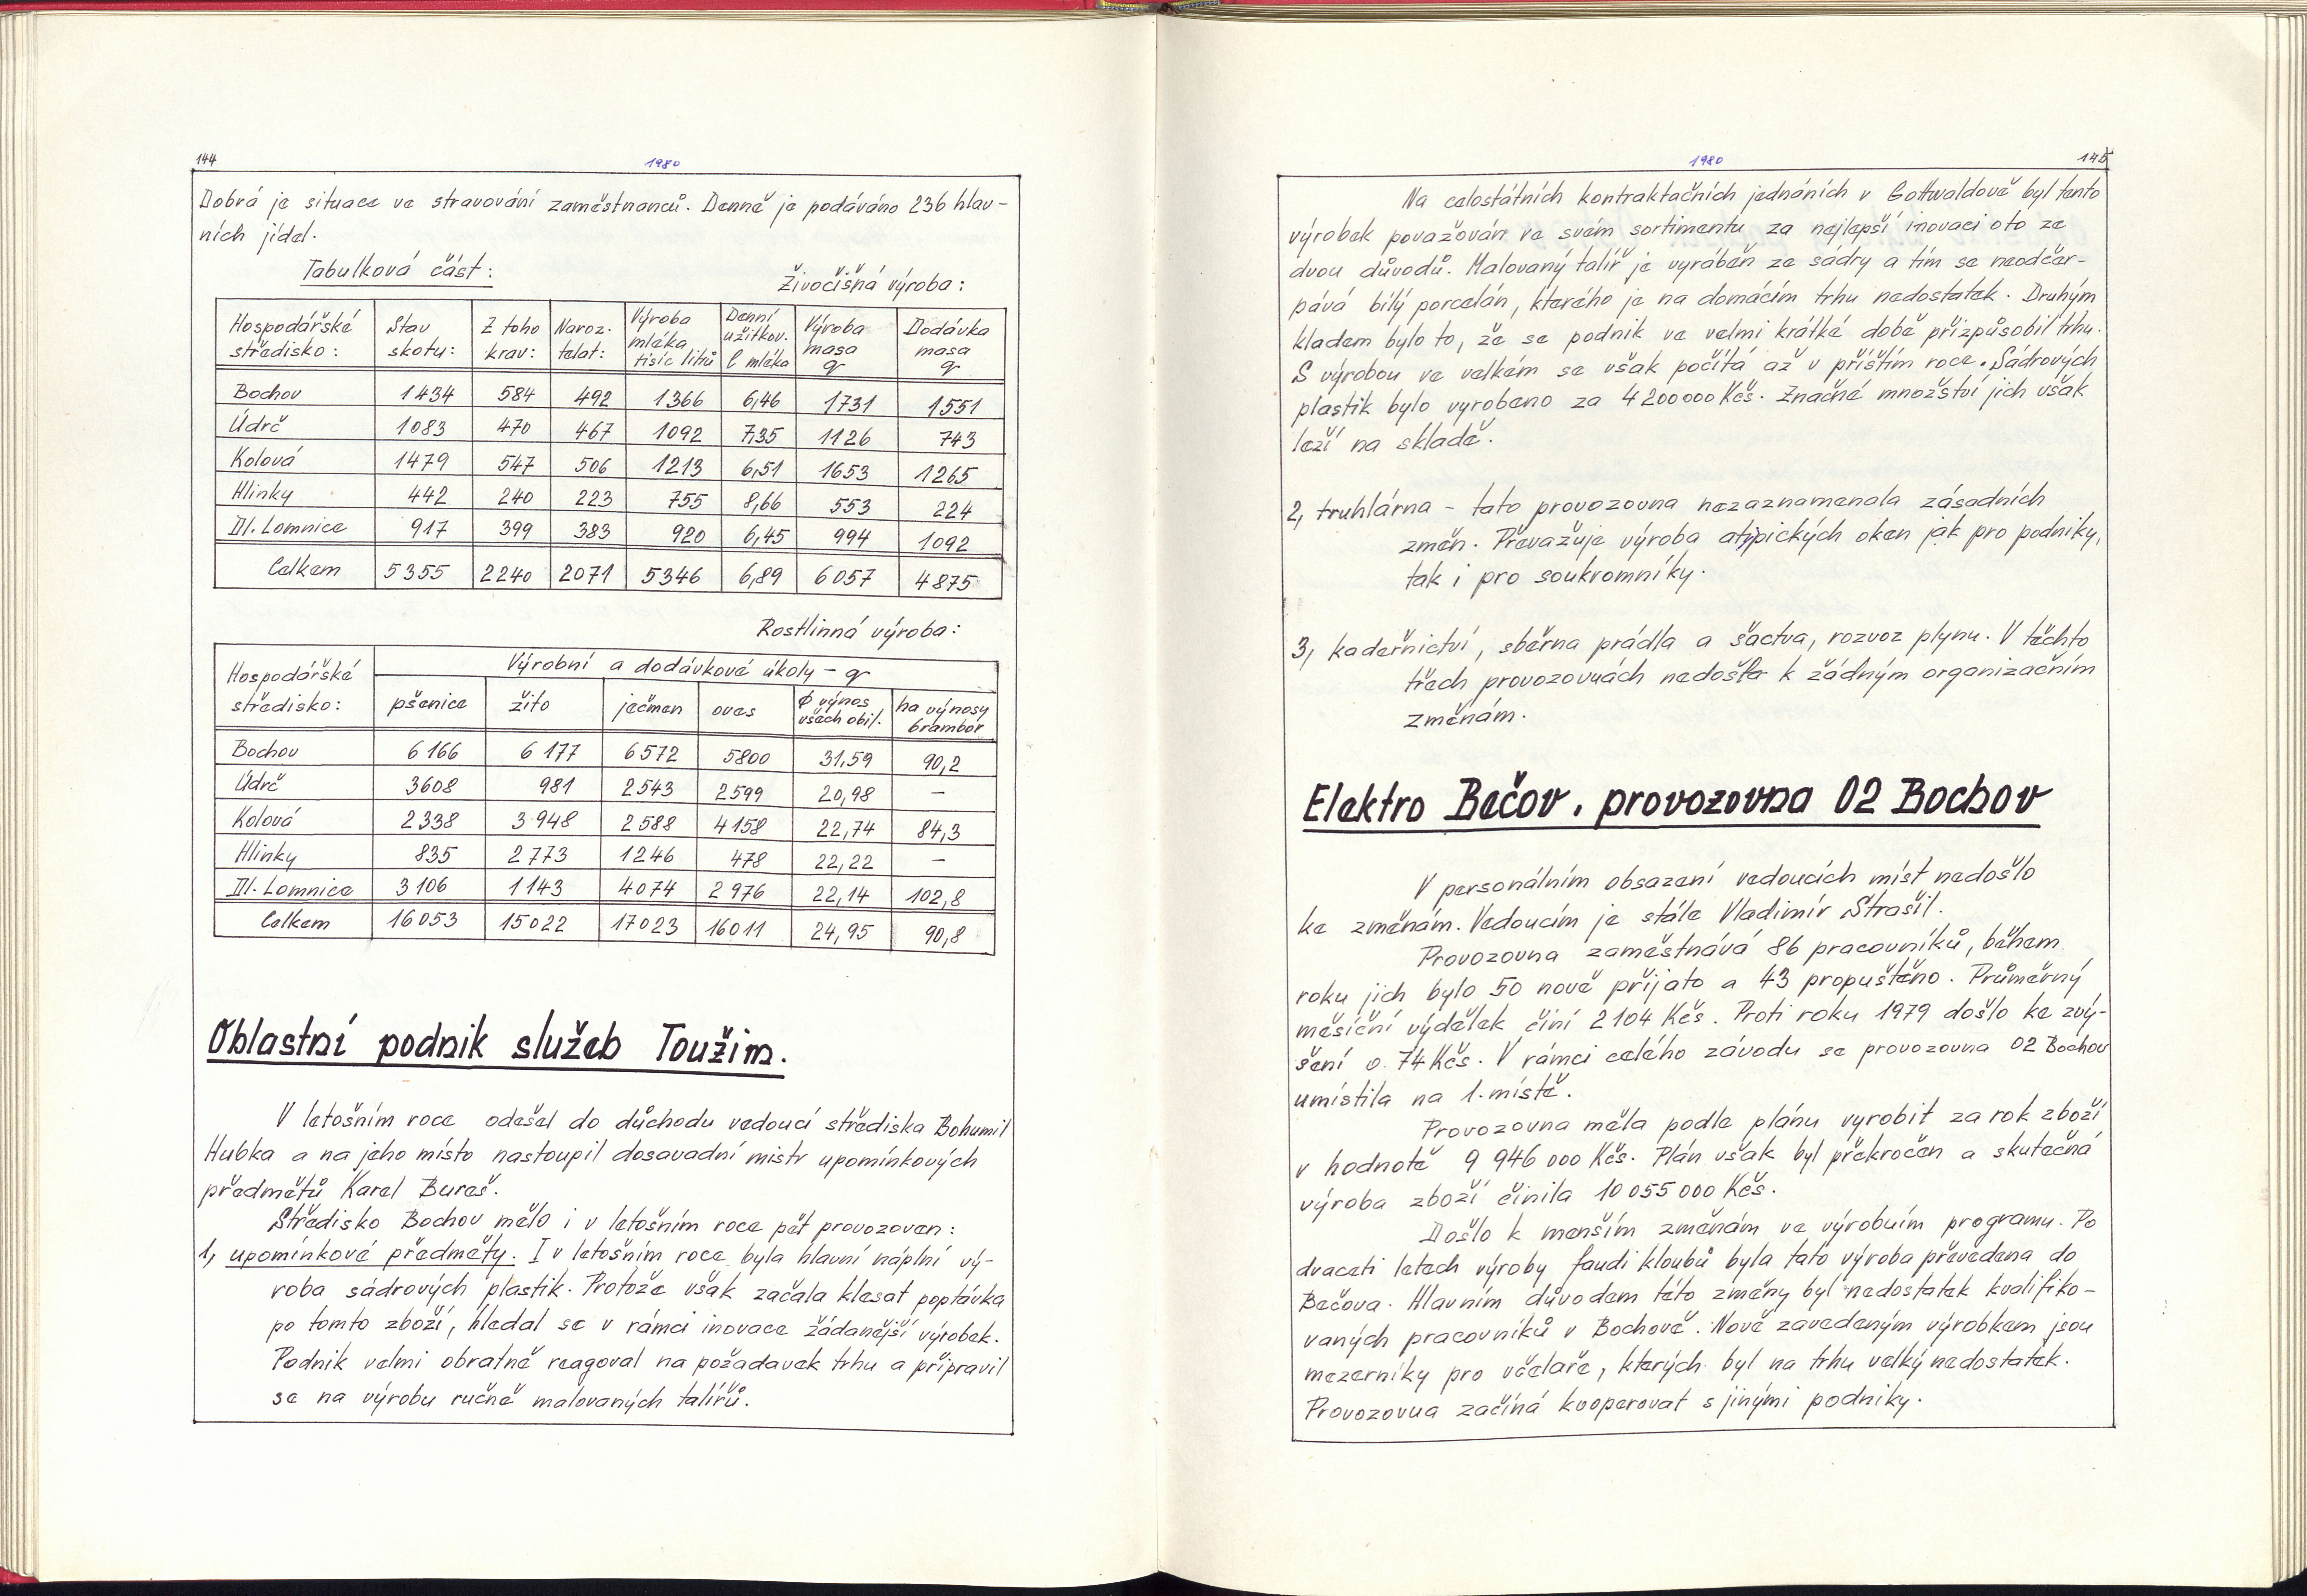 144
1980
Dobrá je situace ve stravování zaměstnanců. Denně je podáváno 236 hlav-
ních jídel.
Tabulková část:
Živočišná výroba:
Hospodářské středisko: | Stav skotu: | Z toho krav: | Naroz. telat: | Výroba mléka tisíc litrů | Denní užitkov. l mléka | Výroba masa q | Dodávka masa q
Bochov | 1434 | 584 | 492 | 1366 | 6,46 | 1731 | 1551
Údrč | 1083 | 470 | 467 | 1092 | 7,35 | 1126 | 743
Kolová | 1479 | 547 | 506 | 1213 | 6,51 | 1653 | 1265
Hlinky | 442 | 240 | 223 | 755 | 8,66 | 553 | 224
Dl. Lomnice | 917 | 399 | 383 | 920 | 6,45 | 994 | 1092
Celkem | 5355 | 2240 | 2071 | 5346 | 6,89 | 6057 | 4875
Rostlinná výroba:
Hospodářské středisko: | Výrobní a dodávkové úkoly - q
pšenice | žito | ječmen | oves | φ výnos všech obil. | ha výnosy brambor
Bochov | 6 166 | 6 177 | 6 572 | 5800 | 31,59 | 90,2
Údrč | 3608 | 981 | 2543 | 2599 | 20,98 | —
Kolová | 2338 | 3 948 | 2588 | 4158 | 22,74 | 84,3
Hlinky | 835 | 2773 | 1246 | 478 | 22,22 | —
Dl. Lomnice | 3106 | 1143 | 4074 | 2976 | 22,14 | 102,8
Celkem | 16053 | 15022 | 17023 | 16011 | 24,95 | 90,8
Oblastní podnik služeb Toužim.
V letošním roce odešel do důchodu vedoucí střediska Bohumil
Hubka a na jeho místo nastoupil dosavadní mistr upomínkových
předmětů Karel Bureš.
Středisko Bochov mělo i v letošním roce pět provozoven:
1, upomínkové předměty. I v letošním roce byla hlavní náplní vý-
roba sádrových plastik. Protože však začala klesat poptávka
po tomto zboží, hledal se v rámci inovace žádanější výrobek.
Podnik velmi obratně reagoval na požadavek trhu a připravil
se na výrobu ručně malovaných talířů.
1980
145
Na celostátních kontraktačních jednáních v Gottwaldově byl tento
výrobek považován ve svém sortimentu za nejlepší inovaci oto ze
dvou důvodů. Malovaný talíř je vyráběn ze sádry a tím se neodčer-
pává bílý porcelán, kterého je na domácím trhu nedostatek. Druhým
kladem bylo to, že se podnik ve velmi krátké době přizpůsobil trhu.
S výrobou ve velkém se však počítá až v příštím roce. Sádrových
plastik bylo vyrobeno za 4200000 Kčs. Značné množství jich však
leží na skladě.
2, truhlárna - tato provozovna nezaznamenala zásadních
změn. Převažuje výroba atypických oken jak pro podniky,
tak i pro soukromníky.
3, kadeřnictví, sběrna prádla a šactva, rozvoz plynu. V těchto
třech provozovnách nedošlo k žádným organizačním
změnám.
Elektro Bečov, provozovna 02 Bochov
V personálním obsazení vedoucích míst nedošlo
ke změnám. Vedoucím je stále Vladimír Strašil.
Provozovna zaměstnává 86 pracovníků, během
roku jich bylo 50 nově přijato a 43 propuštěno. Průměrný
měsíční výdělek činí 2104 Kčs. Proti roku 1979 došlo ke zvý-
šení o 74 Kčs. V rámci celého závodu se provozovna 02 Bochov
umístila na 1. místě.
Provozovna měla podle plánu vyrobit za rok zboží
v hodnotě 9 946 000 Kčs. Plán však byl překročen a skutečná
výroba zboží činila 10 055 000 Kčs.
Došlo k menším změnám ve výrobním programu. Po
dvaceti letech výroby faudi kloubů byla tato výroba převedena do
Bečova. Hlavním důvodem této změny byl nedostatek kvalifiko-
vaných pracovníků v Bochově. Nově zavedeným výrobkem jsou
mezerníky pro včelaře, kterých byl na trhu velký nedostatek.
Provozovna začíná kooperovat s jinými podniky.